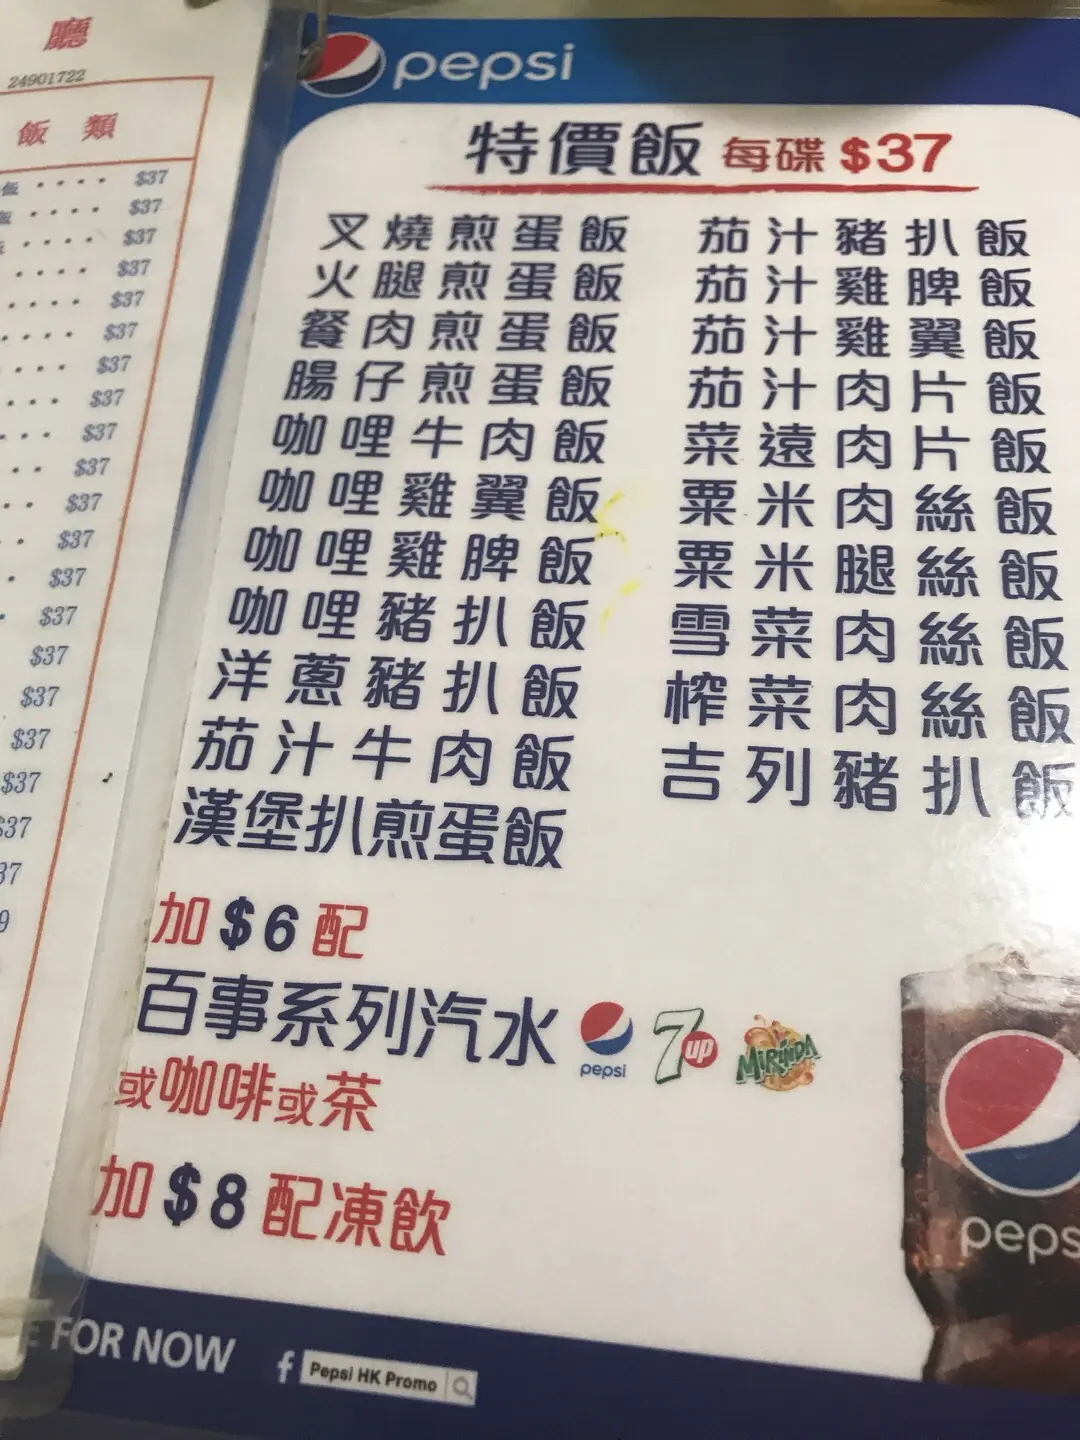 廳
24901722
飯 類
飯 · · · · $37
飯 · · · · $37
· · · · $37
· · · · $37
· · · · $37
· · · · $37
· · · · $37
· · · $37
· · · $37
· · $37
· · $37
· $37
· $37
· $37
$37
$37
$37
$37
$37
37
9
pepsi
特價飯 每碟 $37
叉燒煎蛋飯
火腿煎蛋飯
餐肉煎蛋飯
腸仔煎蛋飯
咖哩牛肉飯
咖哩雞翼飯
咖哩雞脾飯
咖哩豬扒飯
洋蔥豬扒飯
茄汁牛肉飯
漢堡扒煎蛋飯
茄汁豬扒飯
茄汁雞脾飯
茄汁雞翼飯
茄汁肉片飯
菜遠肉片飯
粟米肉絲飯
粟米腿絲飯
雪菜肉絲飯
榨菜肉絲飯
吉列豬扒飯
加 $6 配
百事系列汽水
pepsi
7up
MIRINDA
或咖啡或茶
加 $8 配凍飲
pepsi
FOR NOW
f Pepsi HK Promo